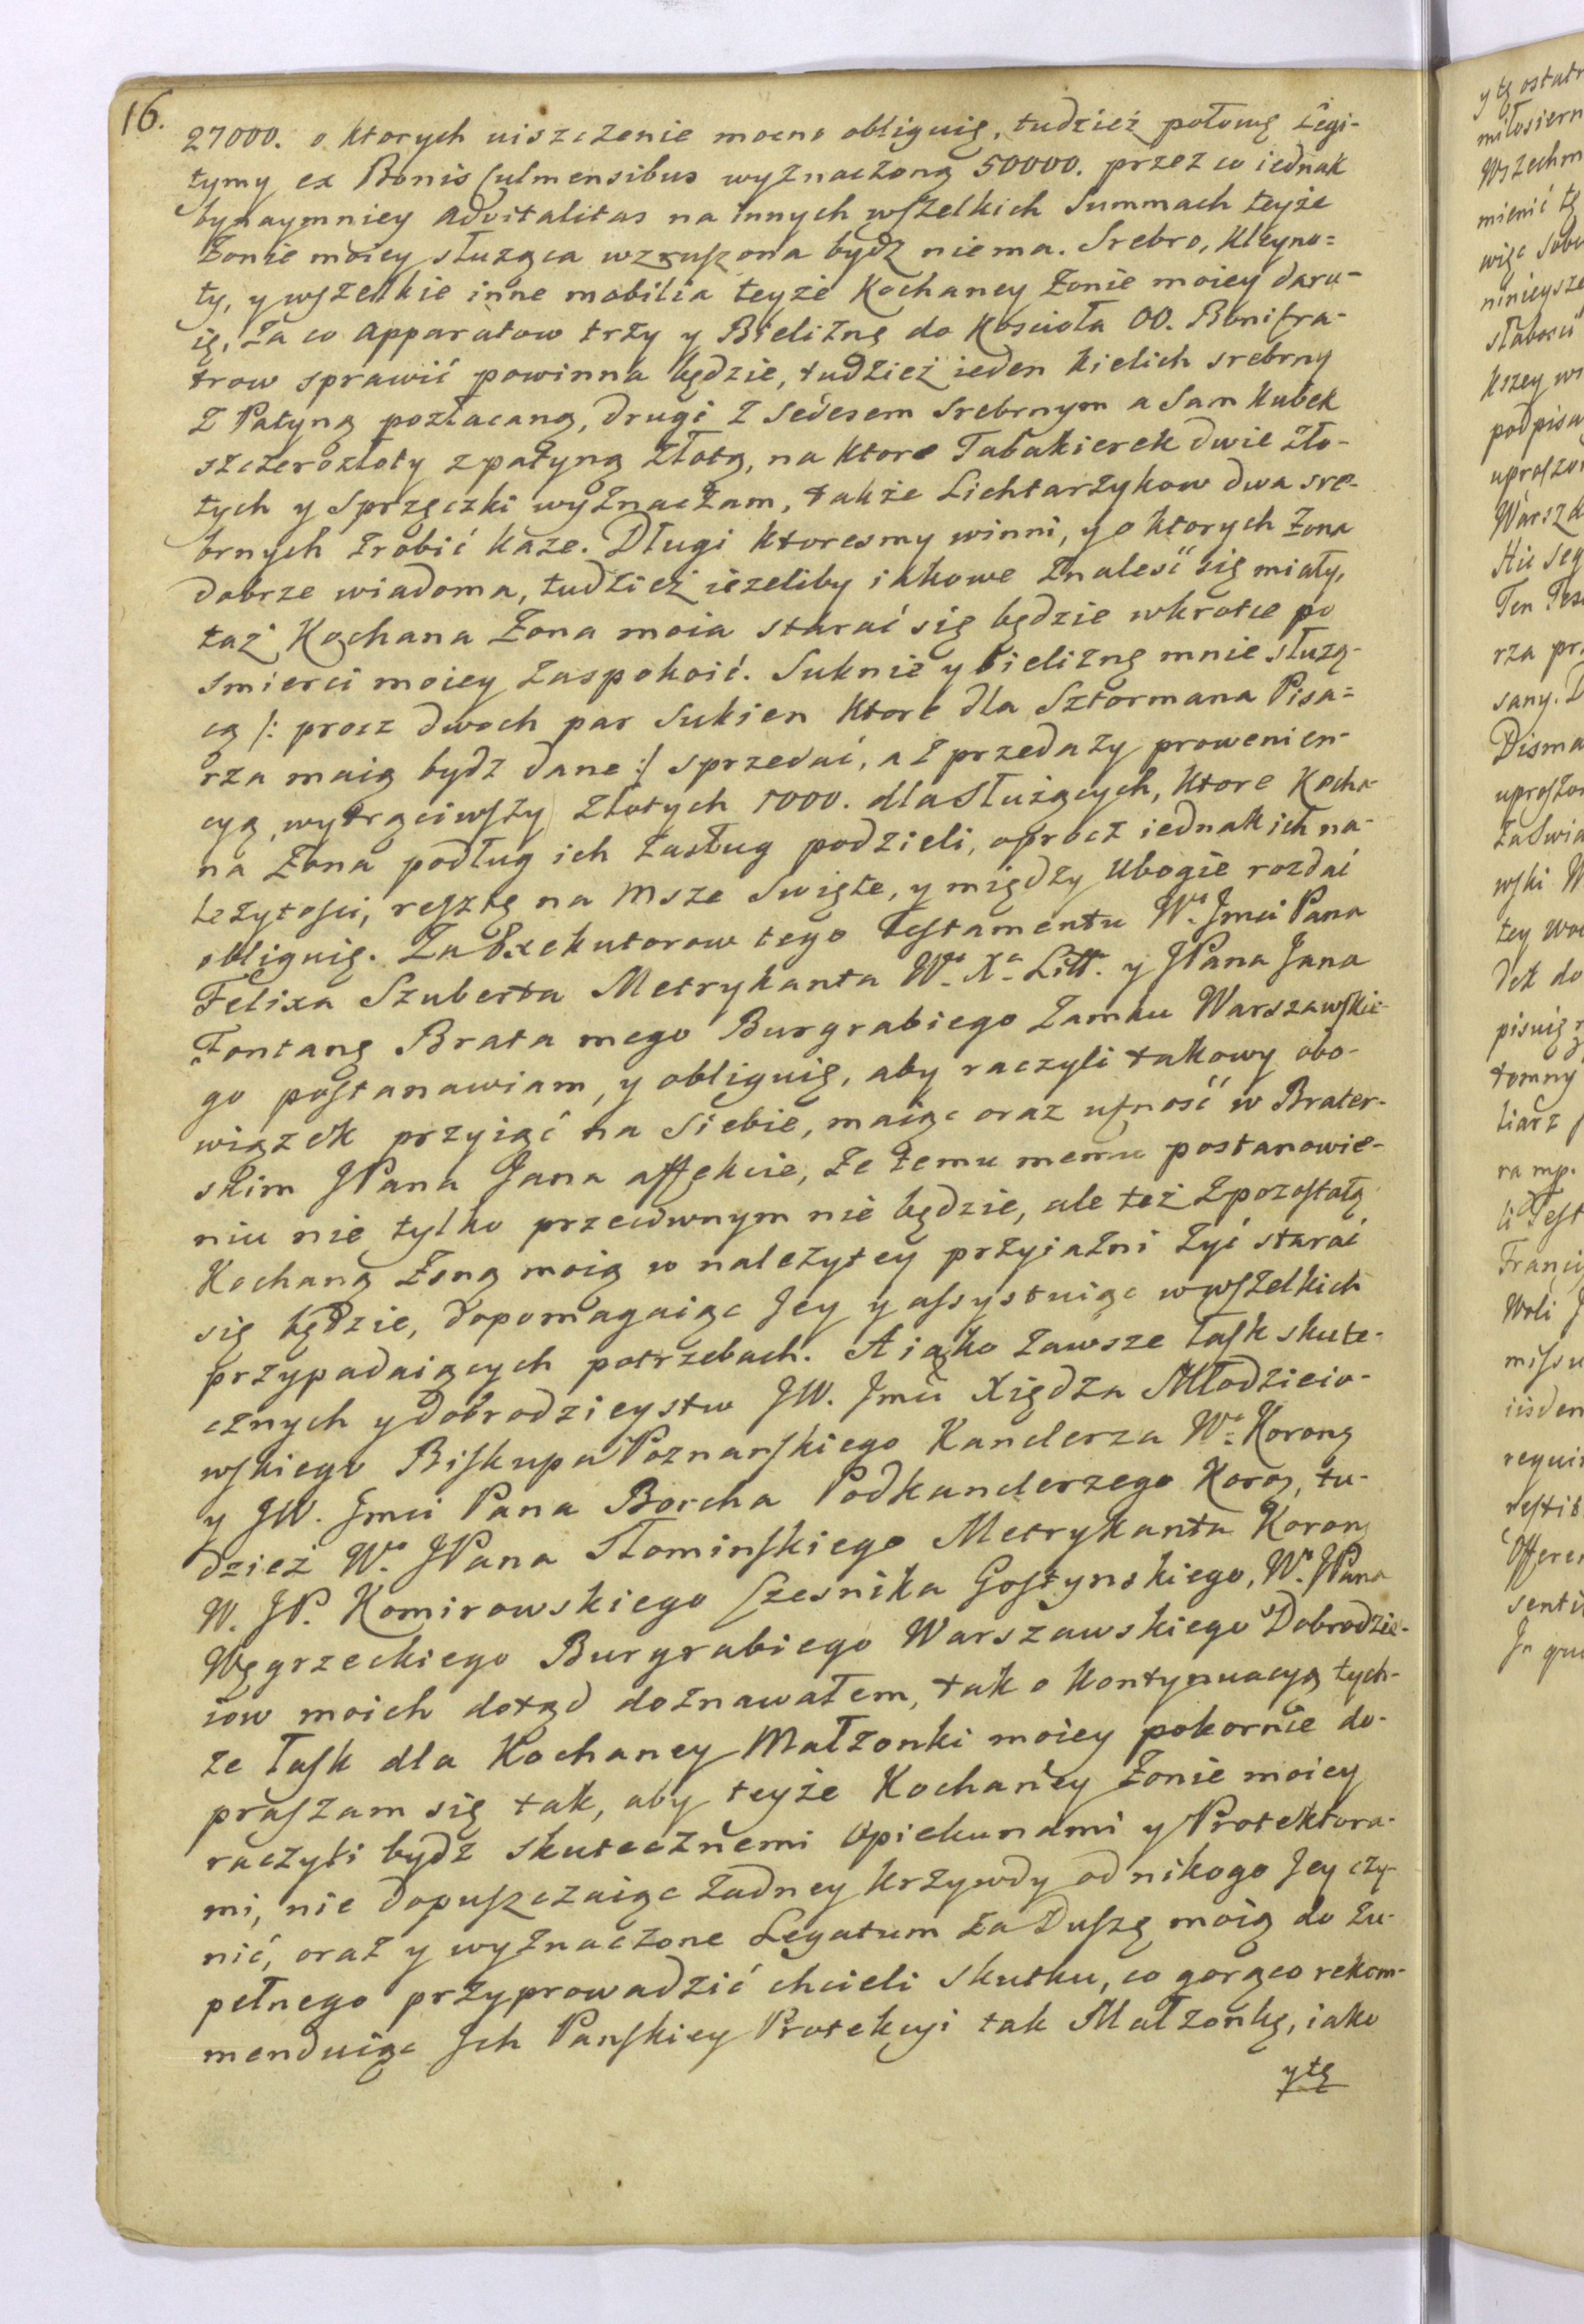 16.
27000. o ktorych uiszczenie mocno obliguię, tudzież połowę Legi-
tymy ex Bonis Culmensibus wyznaczoną 50000. przez co iednak
bynaymniey advitalitas na innych wszelkich Summach teyże
Żonie moiey służąca wzruszona bydz niema. Srebro, Kleyno=
ty, y wszelkie inne mobilia teyże Kochaney Żonie moiey daru-
ię, za co Apparatow trzy y Bieliznę do Kościoła OO. Bonifra-
trow sprawić powinna będzie, tudzież ieden Kielich srebrny
z Patyną pozłacaną, drugi z Sedesem Srebrnym a Sam Kubek
szczerozłoty z patyną złotą, na ktore Tabakierek dwie zło-
tych y Sprzęczki wyznaczam, także Lichtarzykow dwa sre-
brnych zrobić każe. Długi ktoresmy winni, y o ktorych Żona
dobrze wiadoma, tudzież ieżeliby iakowe znaleść się miały,
taż Kochana Żona moia starać się będzie wkrotce po
smierci moiey zaspokoić. Suknie y bieliznę mnie służą-
cą /: procz dwoch par Sukien ktore dla Sztormana Pisa=
rza maią bydz dane :/ sprzedać, a z przedaży prowenien-
cyą, wytrąciwszy złotych 1000. dla Służących, ktore Kocha-
na Żona podług ich zasług podzieli, oprocz iednak ich na-
leżytości, resztę na Msze Swięte, y między Ubogie rozdać
obliguię. Za Exekutorow tego Testamentu Wo. Jmci Pana
Felixa Szuberta Metrykanta Wo. Xa. Litt. y JPana Jana
Fontanę Brata mego Burgrabiego Zamku Warszawskie-
go postanawiam, y obliguię, aby raczyli takowy obo-
wiązek przyiąć na Siebie, maiąc oraz ufność w Brater-
skim JPana Jana affekcie, że temu memu postanowie-
niu nie tylko przeciwnym nie będzie, ale też z pozostałą
Kochaną Żoną moią w należytey przyiaźni żyć starać
się będzie, dopomagaiąc Jey y assystuiąc w wszelkich
przypadaiących potrzebach. A iako zawsze łask skute-
cznych y dobrodzieystw JW. Jmci Xiędza Młodzieio-
wskiego Biskupa Poznańskiego Kanclerza Wo. Korong
y JW. Jmci Pana Borcha Podkanclerzego Koron, tu-
dzież Wo. JPana Słominskiego Metrykanta Koron
W. JP. Komirowskiego Czesnika Gostynskiego, Wo. JPana
Węgrzeckiego Burgrabiego Warszawskiego Dobrodzie-
iow moich dotąd doznawałem, tak o kontynuacyą tych-
że łask dla Kochaney Małżonki moiey pokornie do-
praszam się tak, aby teyże Kochaney Żonie moiey
raczyli bydz skutecznemi Opiekunami y Protektora-
mi, nie dopuszczaiąc żadney krzywdy od nikogo Jey czy-
nić, oraz y wyznaczone Legatum za Duszę moię do zu-
pełnego przyprowadzić chcieli skutku, co gorąco rekom-
menduiąc Ich Pańskiey Protekcyi tak Małżonkę, iako
y tę
y tę ostatn
miłosiern
Wszechm
mienić tę
więc sobie
ninieysze
słabości
kszey
podpisu
uproszon
Warsza
Ten Tes
rza pr
sany.
Disma
uproszon
wski
tey
do
pisuię
tomny
ra mp.
Test
Franci
Woli
missu
iisdem
requi
restit
Offere
senti
In qu